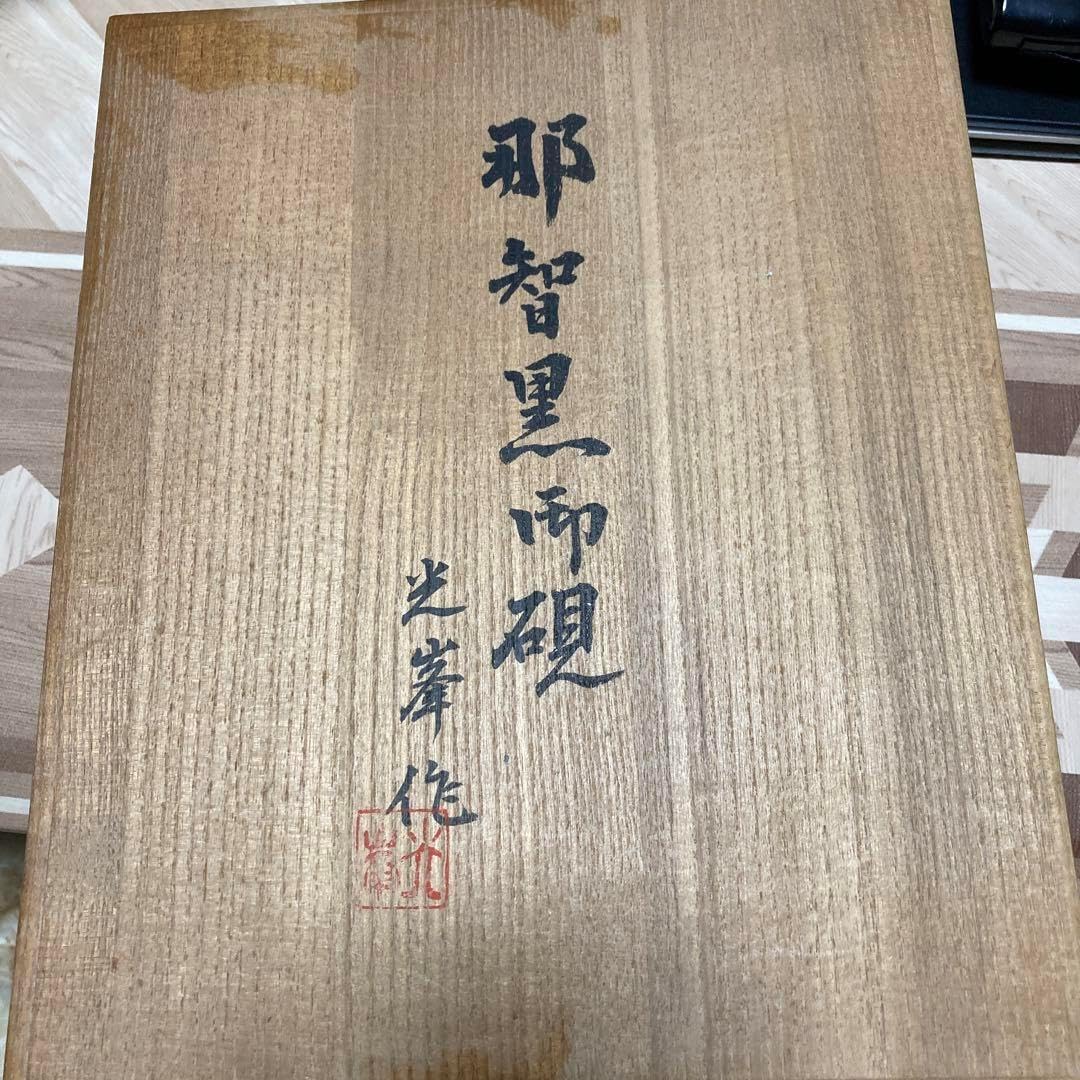 那智黒御硯
光峯作
光峯